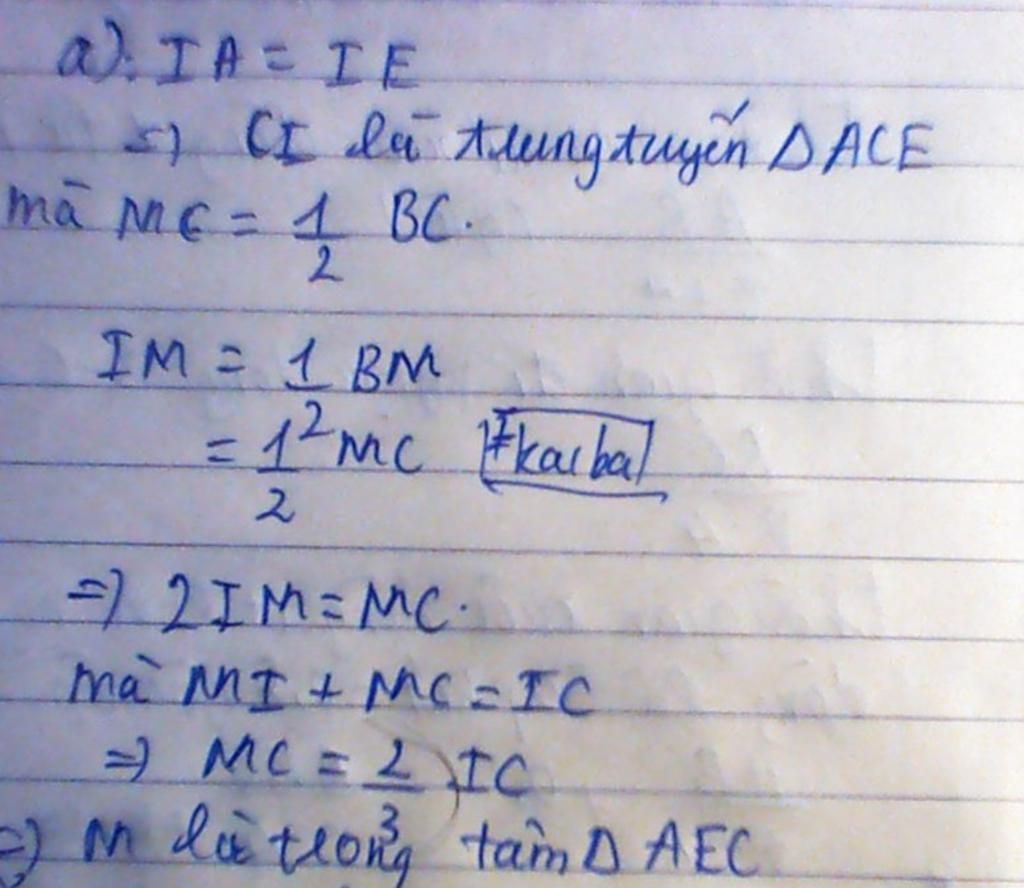 a): IA = IE
=> CI là trung tuyến Δ ACE
mà MC = 1/2 BC.
IM = 1/2 BM
= 1/2 MC Ikaiba
=> 2IM = MC.
mà MI + MC = IC
=> MC = 2/3 IC
=> M là trọng tâm Δ AEC